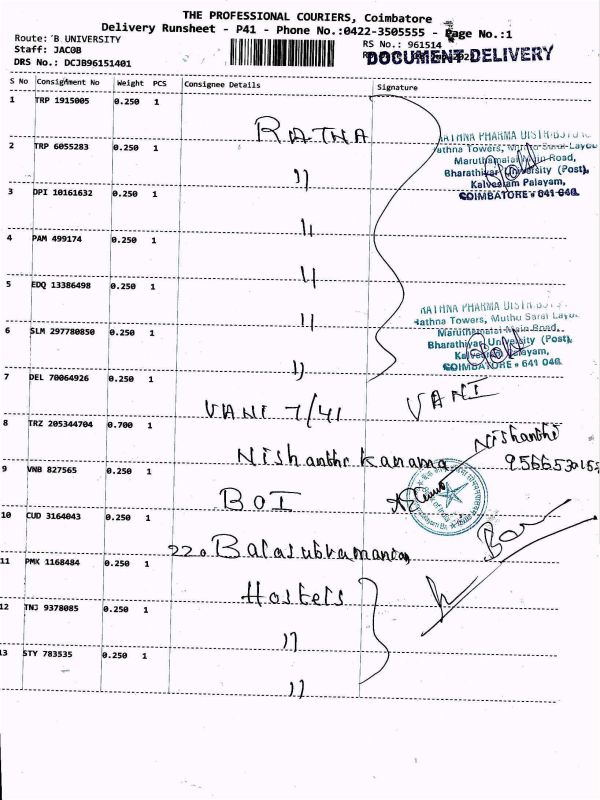 THE PROFESSIONAL COURIERS, Coimbatore
Delivery Runsheet - P41 - Phone No.:0422-3505555 - Page No.:1
Route: B UNIVERSITY
RS No.: 961514
Staff: JACOB
DOCUMENT DELIVERY
DRS No.: DCJB96151401
S No Consignment No Weight PCS Consignee Details Signature
1 TRP 1915005 0.250 1 RATNA
2 TRP 6055283 0.250 1 "
RATHNA PHARMA DISTRIBUTORS
Rathna Towers, Muthu Sarai Layou
Maruthamalai Main Road,
Bharathiyar University (Post),
Kalveeram Palayam,
COIMBATORE - 641 046.
3 DPI 10161632 0.250 1 "
4 PAM 499174 0.250 1 "
5 EDQ 13386498 0.250 1 "
6 SLM 297780850 0.250 1 "
RATHNA PHARMA DISTRIBUTO
Rathna Towers, Muthu Sarai Layou
Maruthamalai Main Road,
Bharathiyar University (Post),
Kalveeram Palayam,
COIMBATORE - 641 046.
7 DEL 70064926 0.250 1 VANI 7/41 VANI
8 TRZ 205344704 0.700 1 Nishanthi Kanama Nishanthi
9 VNB 827565 0.250 1 BOI
10 CUD 3164043 0.250 1 220 Balasubramanian
11 PMK 1168484 0.250 1 Hostels
12 TNJ 9378085 0.250 1 "
13 STY 783535 0.250 1 "